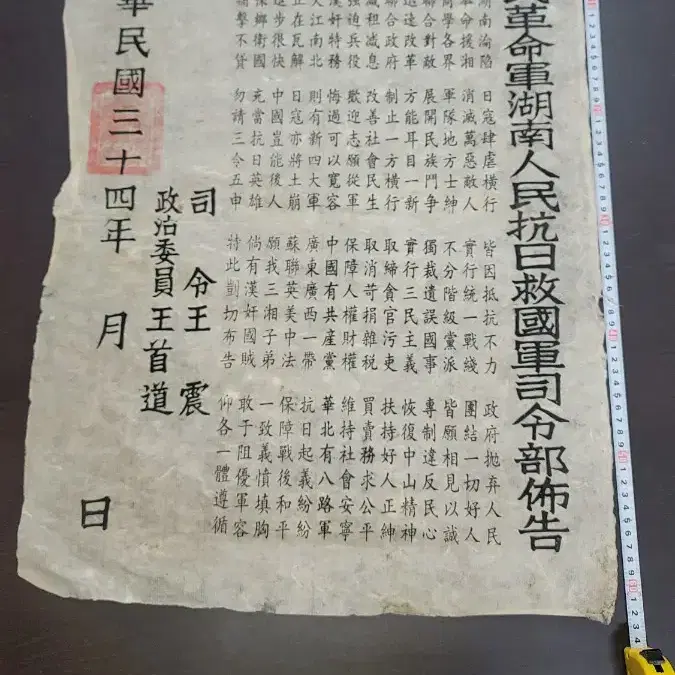 民革命軍湖南人民抗日救國軍司令部佈告
湖南淪陷 日寇肆虐橫行 皆因抵抗不力 政府拋弃人民
革命援湘 消滅萬惡敵人 實行統一戰綫 團結一切好人
商學各界 軍隊地方士紳 不分階級黨派 皆願相見以誠
聯合對敵 展開民族鬥争 獨裁遺誤國事 專制違反民心
迅速改革 方能耳目一新 實行三民主義 恢復中山精神
聯合政府 制止一方橫行 取締貪官污吏 扶持好人正紳
減租减息 改善社會民生 取消苛捐雜税 買賣務求公平
強迫兵役 歡迎志願從軍 保障人權財權 維持社會安寧
漢奸特務 悔過可以寬容 中國有共產黨 華北有八路軍
大江南北 則有新四大軍 廣東廣西一帶 抗日起義紛紛
正在瓦解 日寇亦將土崩 蘇聯英美中法 保障戰後和平
進步很快 中國豈能後人 願我三湘子弟 一致義憤填胸
保鄉衛國 充當抗日英雄 倘有漢奸國賊 敢于阻優軍容
擊不貸 勿請三令五申 特此剴切布告 仰各一體遵循
司令王震
政治委員王首道
華民國三十四年 月 日